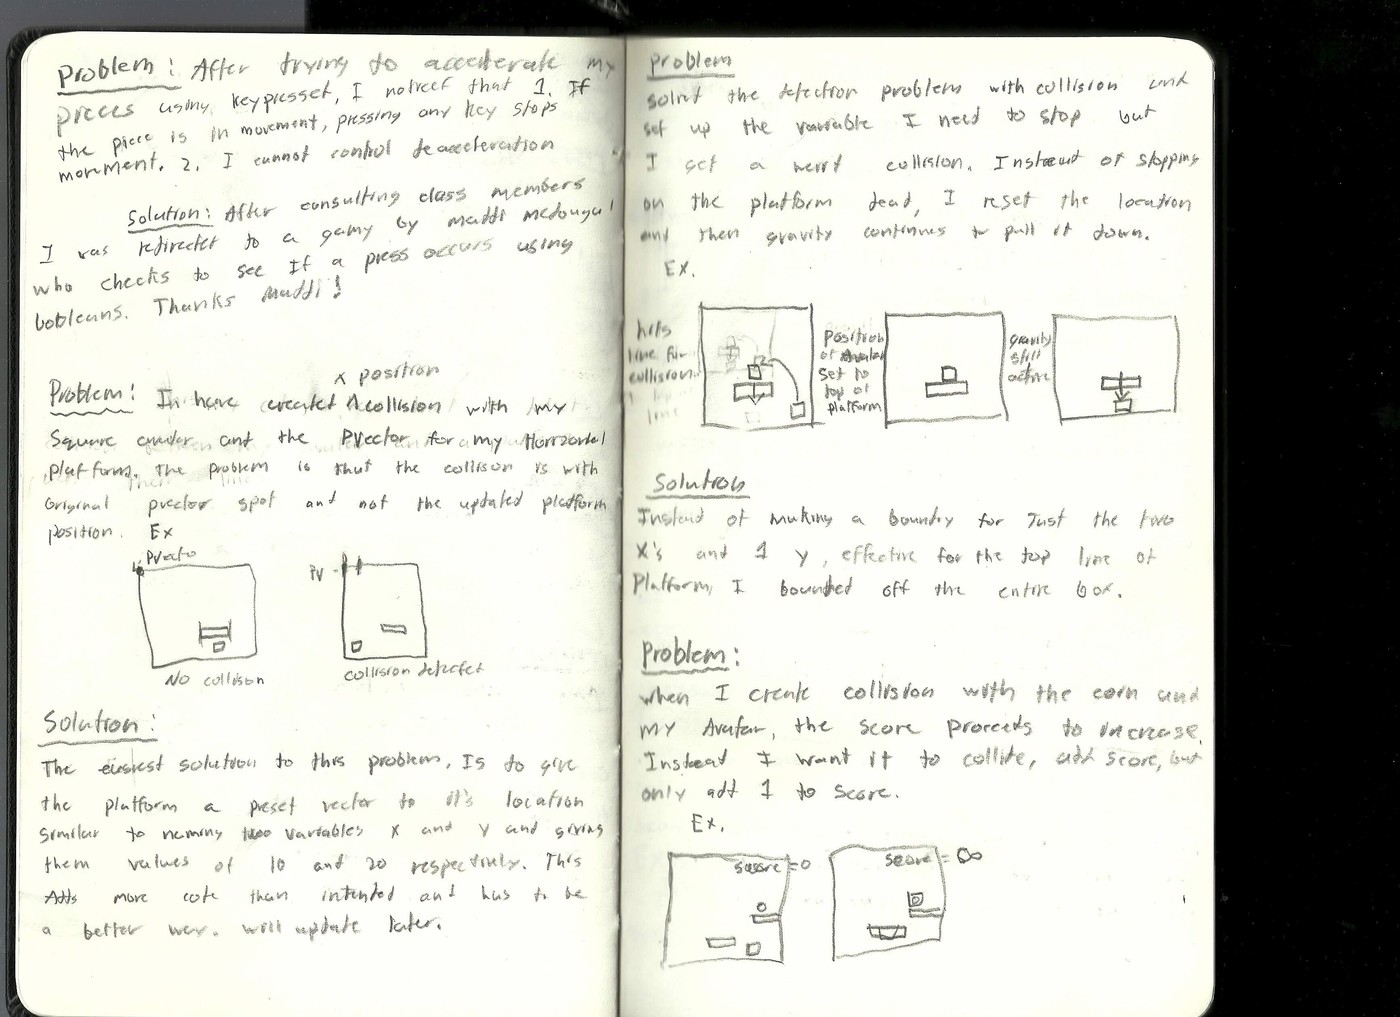 Problem: After trying to accelerate my
pieces using keypressed, I noticed that 1. If
the piece is in movement, pressing any key stops
movment. 2. I cannot control deacceleration
Solution: After consulting class members
I was redirected to a game by Maddi McDougal
who checks to see If a press occurs using
boobleans. Thanks Maddi!
x position
Problem: I have created ^ collision with my
Square and the PVector for my Horizontal
platform. The problem is that the collison is with
original pvector spot and not the updated platform
position. Ex
PVecto
No collison
PV
collision detected
Solution:
The easiest solution to this problem, Is to give
the platform a preset vector to it's location
similar to naming two variables x and y and giving
them values of 10 and 20 respectively. This
Adds more code than intended and has to be
a better way. will update later.
Problem
solved the detection problem with collision and
set up the variable I need to stop but
I get a weird collision. Instead of stopping
on the platform dead, I reset the location
and then gravity continues to pull it down.
Ex.
hits
line for
collision
line
Position
of Avatar
set to
top of
platform
gravity
still
active
Solution
Instead of making a boundry for Just the two
X's and 1 y, effective for the top line of
Platform, I bounded off the entire box.
Problem:
when I create collision with the coin and
my Avatar, the score proceeds to increase.
Instead I want it to collide, add score, but
only add 1 to score.
Ex.
score=0
score=∞